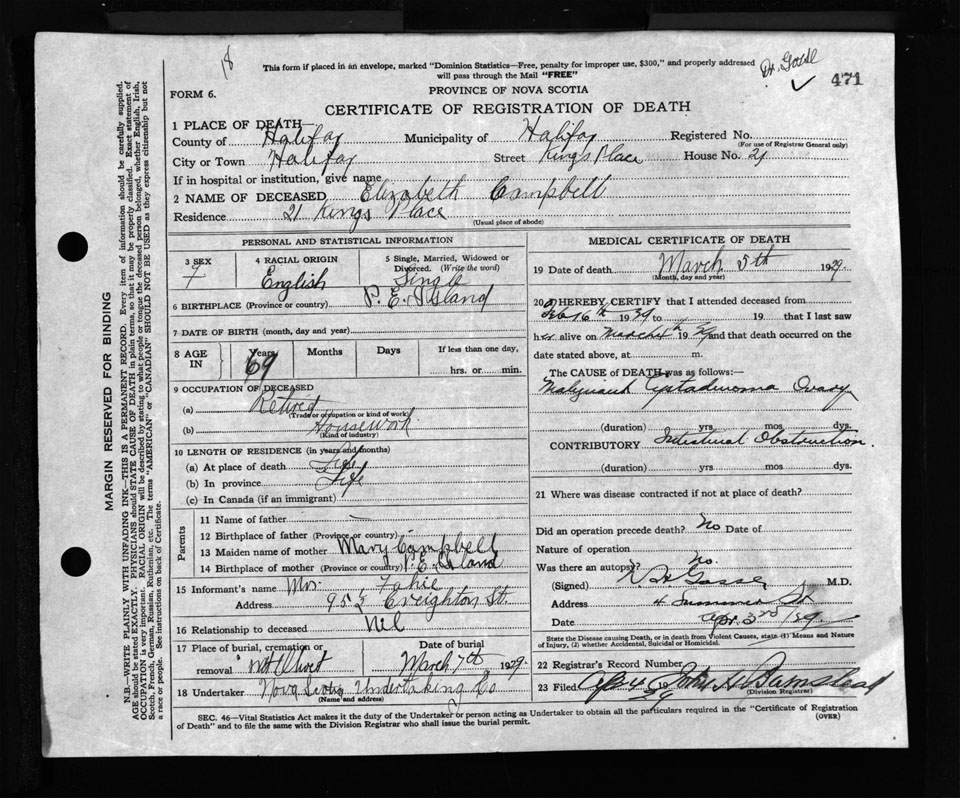 18
This form if placed in an envelope, marked "Dominion Statistics—Free, penalty for improper use, $300," and properly addressed
will pass through the Mail "FREE"
471
PROVINCE OF NOVA SCOTIA
FORM 6.
CERTIFICATE OF REGISTRATION OF DEATH
1 PLACE OF DEATH—
County of Halifax Municipality of Halifax Registered No.
(For use of Registrar General only)
City or Town Halifax Street Kings Place House No. 21
If in hospital or institution, give name
2 NAME OF DECEASED Elizabeth Campbell
Residence 21 Kings Place
(Usual place of abode)
PERSONAL AND STATISTICAL INFORMATION
3 SEX 4 RACIAL ORIGIN 5 Single, Married, Widowed or
Divorced. (Write the word)
F English Single
6 BIRTHPLACE (Province or country) P. E. Island
7 DATE OF BIRTH (month, day and year)
8 AGE IN Years Months Days If less than one day,
69 hrs. or min.
9 OCCUPATION OF DECEASED
(a) Retired
(Trade or occupation or kind of work)
(b) Housework
(Kind of industry)
10 LENGTH OF RESIDENCE (in years and months)
(a) At place of death Life
(b) In province Life
(c) In Canada (if an immigrant)
Parents
11 Name of father —
12 Birthplace of father (Province or country)
13 Maiden name of mother Mary Campbell
14 Birthplace of mother (Province or country) P. E. Island
15 Informant's name Mrs. Fahie
Address Creighton St.
16 Relationship to deceased Nil
17 Place of burial, cremation or removal Date of burial
Mt Olivet March 7th 1939
18 Undertaker Nova Scotia Undertaking Co
(Name and address)
MEDICAL CERTIFICATE OF DEATH
19 Date of death March 5th 1939.
(Month, day and year)
20 I HEREBY CERTIFY that I attended deceased from
Feb 16th 1939 to 19 that I last saw
her alive on March 19 39 and that death occurred on the
date stated above, at m.
The CAUSE OF DEATH was as follows:—
Malignant Cystadenoma Ovary
(duration) yrs. mos. dys.
CONTRIBUTORY Intestinal Obstruction.
(duration) yrs mos. dys.
21 Where was disease contracted if not at place of death?
Did an operation precede death? No Date of
Nature of operation
Was there an autopsy? No.
(Signed) M.D.
Address 4 Summer St
Date Apr. 3rd /39
State the Disease causing Death, or in death from Violent Causes, state (1) Means and Nature
of Injury, (2) whether Accidental, Suicidal or Homicidal.
22 Registrar's Record Number
23 Filed Apr 4 1939 John
(Division Registrar)
SEC. 46—Vital Statistics Act makes it the duty of the Undertaker or person acting as Undertaker to obtain all the particulars required in the "Certificate of Registration
of Death" and to file the same with the Division Registrar who shall issue the burial permit.
(OVER)
MARGIN RESERVED FOR BINDING
N.B.—WRITE PLAINLY WITH UNFADING INK—THIS IS A PERMANENT RECORD. Every item of information should be carefully supplied.
AGE should be stated EXACTLY. PHYSICIANS should STATE CAUSE OF DEATH in plain terms, so that it may be properly classified. Exact statement of
OCCUPATION is very important. RACIAL ORIGIN will be described by stating to what people or tongue the deceased person belonged, whether English, Irish,
Scotch, French, German, Russian, Ruthenian, etc. The terms "AMERICAN" or "CANADIAN" SHOULD NOT BE USED as they express citizenship but not
a race or people. See instructions on back of Certificate.